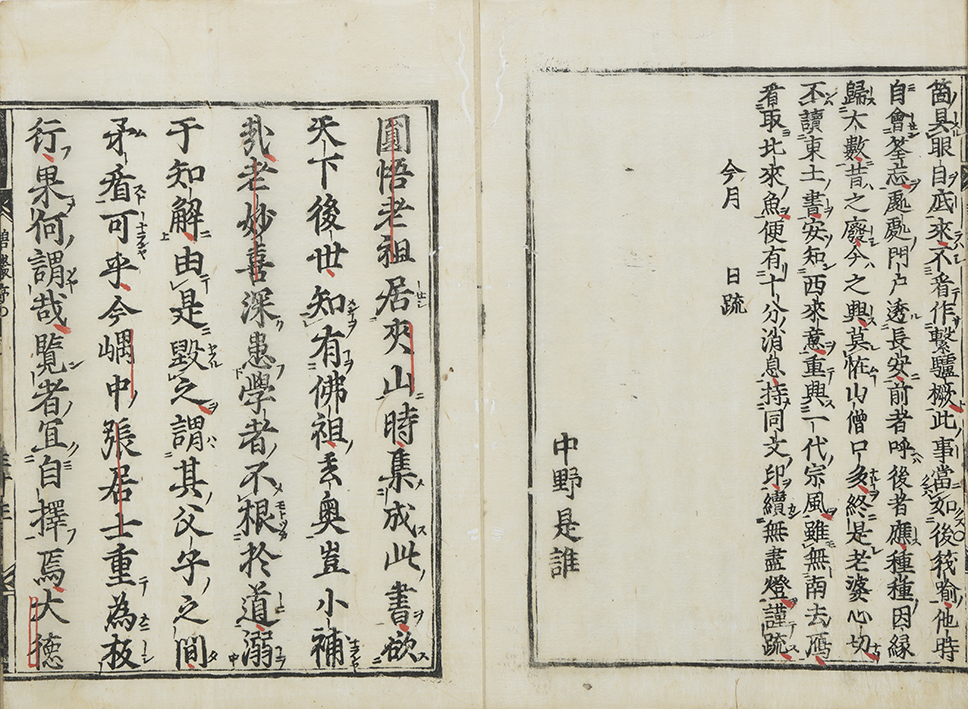 箇具眼目底來不着作繫驢橛此事當如後筏喻他時
自會筌忘處處門戶透長安前者呼後者應種種因緣
歸大數昔之廢今之興莫恠山僧口多終是老婆心切
不讀東土書安知西來意重興一代宗風雖無南去鴈
看取北來魚便有十分消息持同文印續無盡燈謹疏
今月 日疏
中野是誰
圓悟老祖居夾山時集成此書欲
天下後世知有佛祖玄奧豈小補
哉老妙喜深患學者不根於道溺
于知解由是毀之謂其父子之間
矛盾可乎今嵎中張居士重為板
行果何謂哉覽者宜自擇焉大德